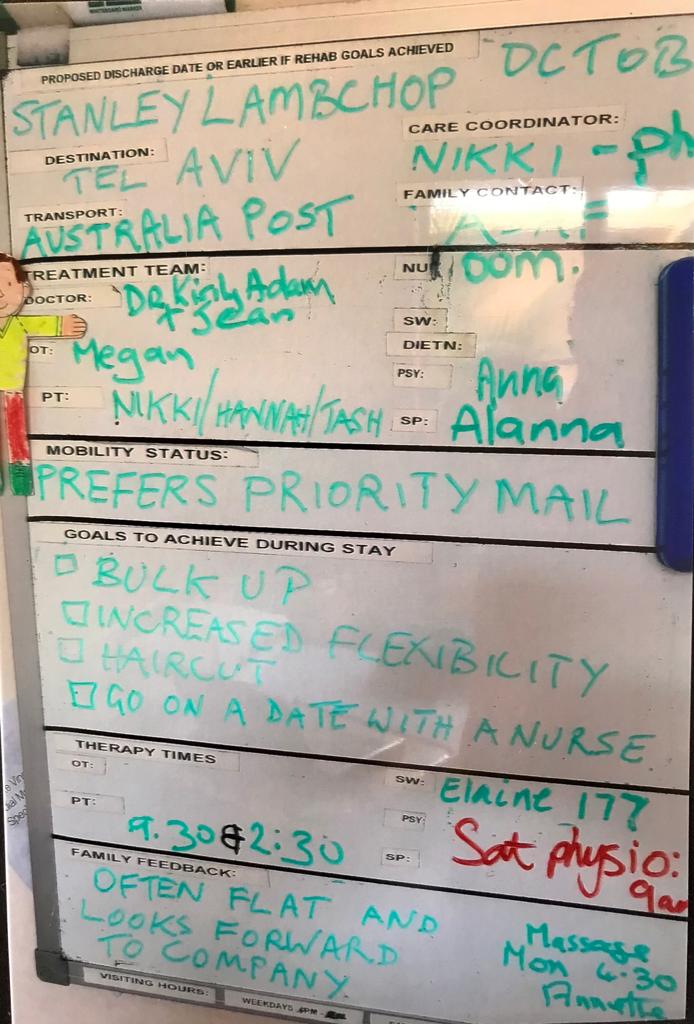 PROPOSED DISCHARGE DATE OR EARLIER IF REHAB GOALS ACHIEVED
OCTOB
STANLEY LAMBCHOP
DESTINATION:
TEL AVIV
CARE COORDINATOR:
NIKKI - ph
TRANSPORT:
AUSTRALIA POST
FAMILY CONTACT:
TREATMENT TEAM:
DOCTOR: Dr Kirily Adam
+ Jean
NU oom.
OT: Megan
SW:
DIETN:
PSY: Anna
PT: NIKKI/HANNAH/TASH
SP: Alanna
MOBILITY STATUS:
PREFERS PRIORITY MAIL
GOALS TO ACHIEVE DURING STAY
BULK UP
INCREASED FLEXIBILITY
HAIRCUT
GO ON A DATE WITH A NURSE
THERAPY TIMES
OT:
SW: Elaine 177
PT: 9.30 & 2:30
PSY:
SP:
Sat physio:
9am
FAMILY FEEDBACK:
OFTEN FLAT AND
LOOKS FORWARD
TO COMPANY
Massage
Mon 4.30
Annette
VISITING HOURS: WEEKDAYS